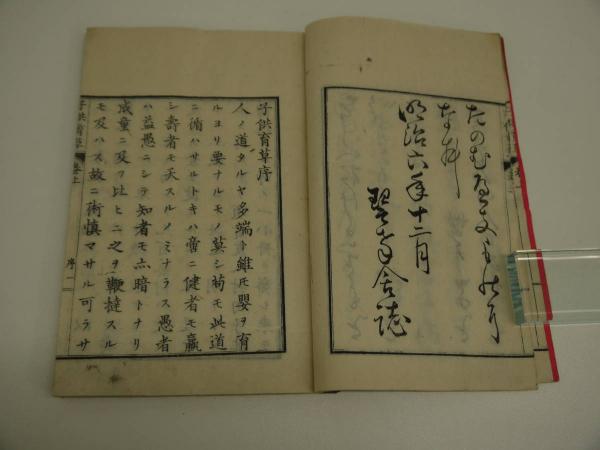 なり
明治六年十二月
子供育草序
人ノ道タルヤ多端ト雖モ嬰ヲ育
ルヨリ要ナルモノ莫シ苟モ此道
ニ循ハサルトキハ啻ニ健者モ羸
シ壽者モ夭スルノミナラス愚者
ハ益愚ニシテ知者モ亦暗トナリ
成童ニ及フ比ヒニ之ヲ鞭撻スル
モ及ハス故ニ術慎マサル可ラサ
子供育草 巻上 序 一